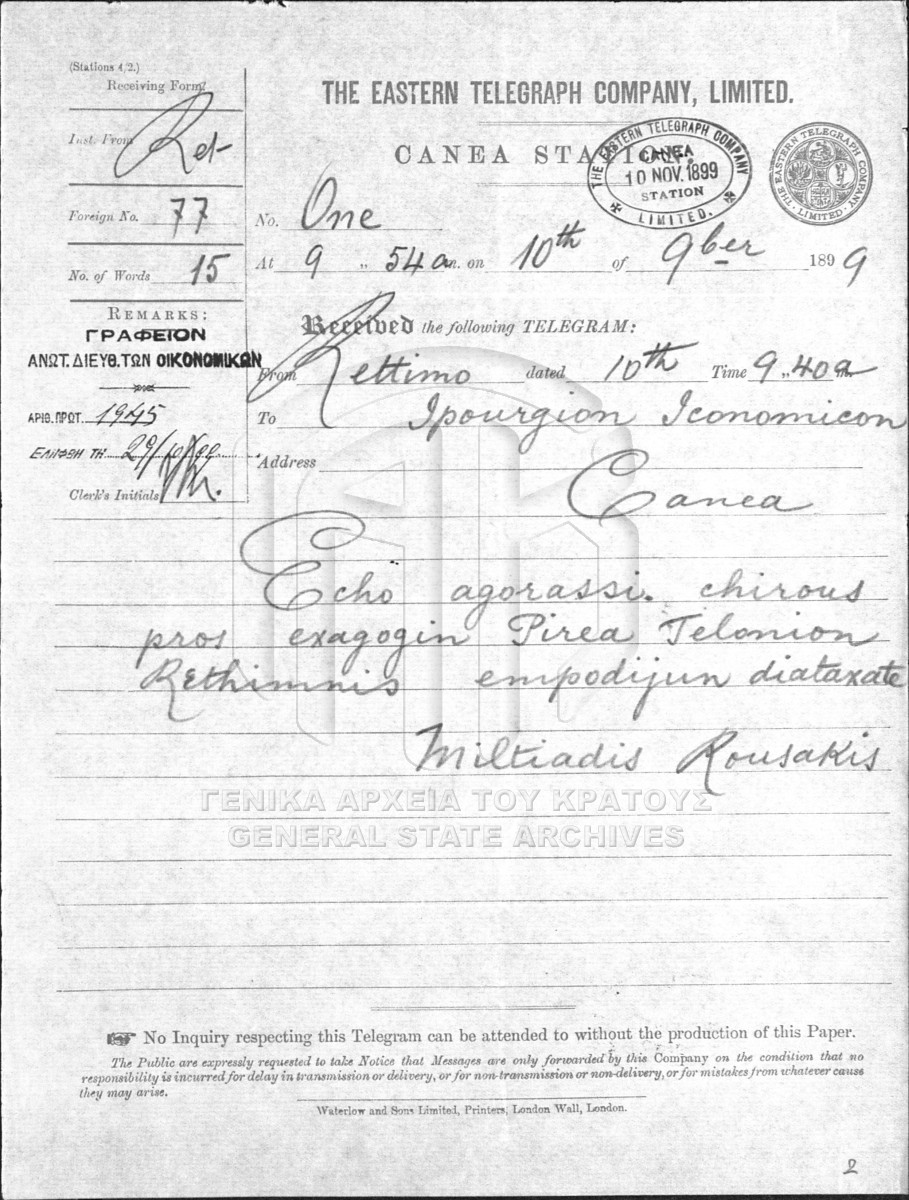 (Stations 4/2.)
Receiving Form
THE EASTERN TELEGRAPH COMPANY, LIMITED.
CANEA STATION.
THE EASTERN TELEGRAPH COMPANY
CANEA
10 NOV. 1899
STATION
LIMITED.
THE EASTERN TELEGRAPH COMPANY · LIMITED ·
Inst. From Ret-
Foreign No. 77
No. One
No. of Words 15
At 9 „ 54 a.m. on 10th of 9ber 1899
REMARKS:
ΓΡΑΦΕΙΟΝ
ΑΝΩΤ. ΔΙΕΥΘ. ΤΩΝ ΟΙΚΟΝΟΜΙΚΩΝ
Received the following TELEGRAM:
From Rettimo dated 10th Time 9 „ 40 a m
ΑΡΙΘ. ΠΡΩΤ. 1945
To Ipourgion Iconomicon
ΕΛΙΦΘΗ ΤΗ 29/10/99
Address
Canea
Clerk's Initials
Echo agorassi. chirous
pros exagogin Pirea Telonion
Rethimnis empodijun diataxate
Miltiadis Rousakis
ΓΕΝΙΚΑ ΑΡΧΕΙΑ ΤΟΥ ΚΡΑΤΟΥΣ
GENERAL STATE ARCHIVES
No Inquiry respecting this Telegram can be attended to without the production of this Paper.
The Public are expressly requested to take Notice that Messages are only forwarded by this Company on the condition that no
responsibility is incurred for delay in transmission or delivery, or for non-transmission or non-delivery, or for mistakes from whatever cause
they may arise.
Waterlow and Sons Limited, Printers, London Wall, London.
2